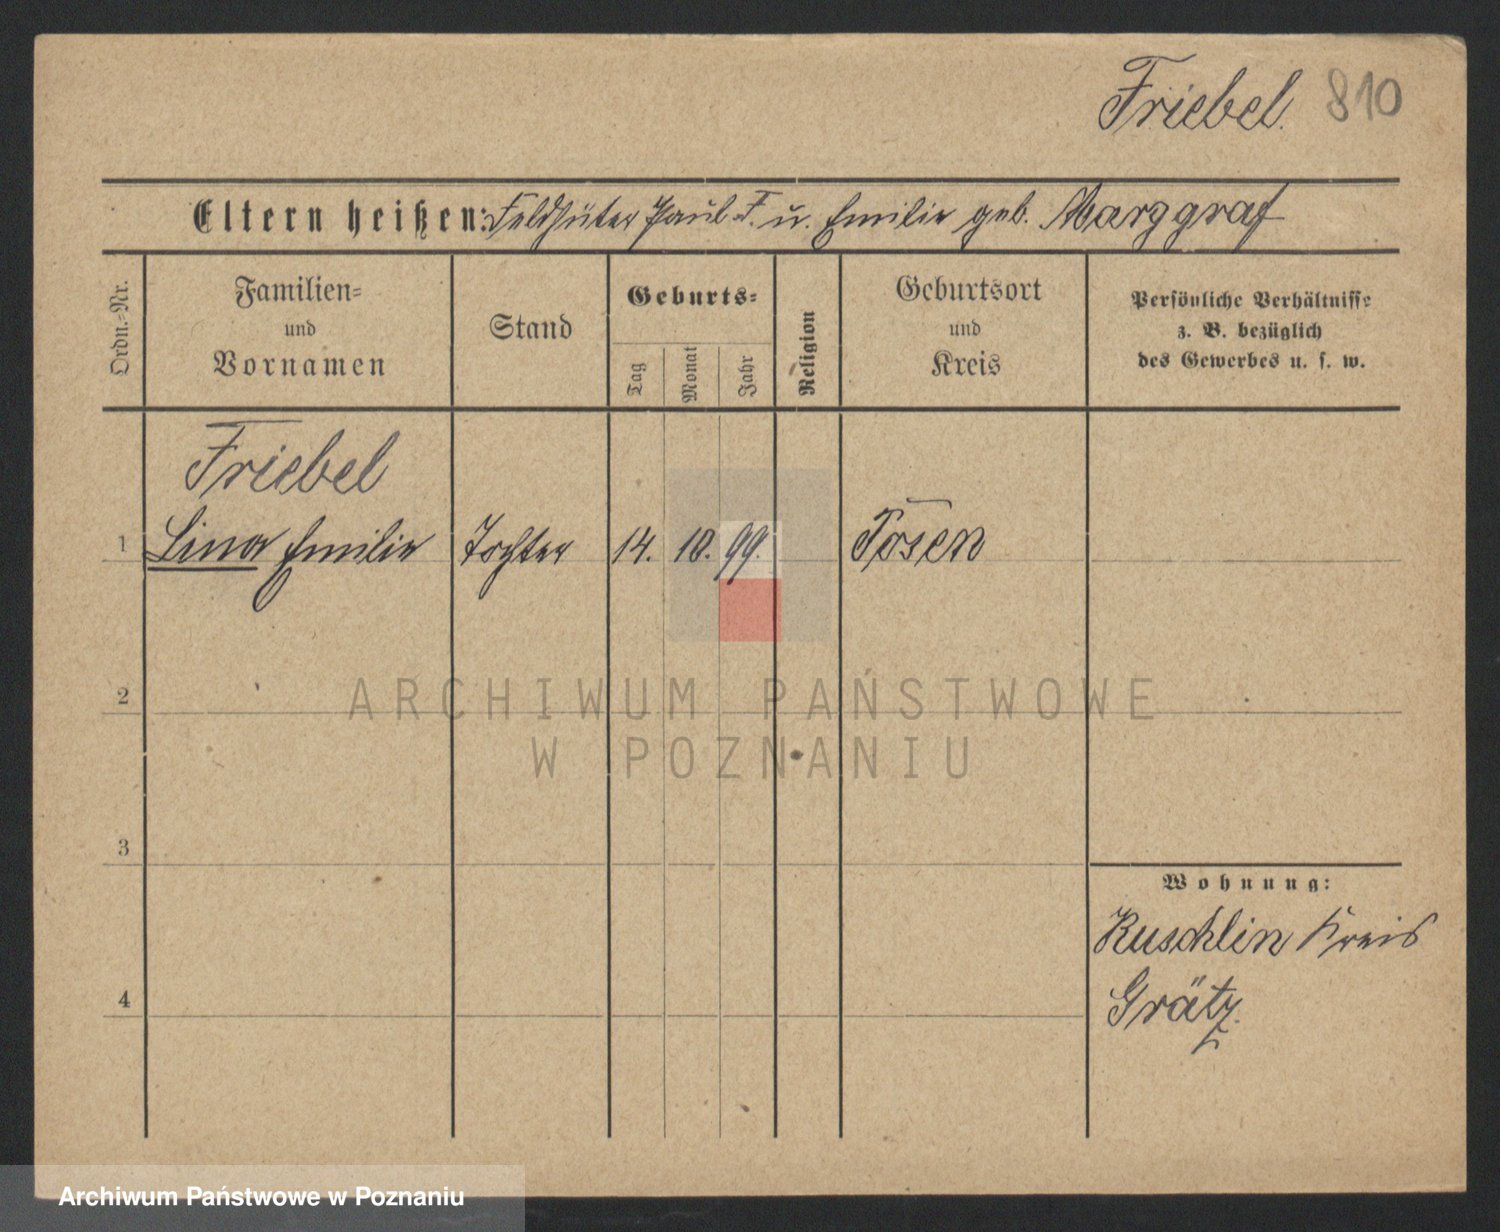 Friebel. 810
Eltern heißen: Feldhüter Paul F. u. Emilie geb. Marggraf
Ordn.-Nr.
Familien-
und
Vornamen
Stand
Geburts-
Tag
Monat
Jahr
Religion
Geburtsort
und
Kreis
Persönliche Verhältnisse
z. B. bezüglich
des Gewerbes u. s. w.
Friebel
1 Lina Emilie Tochter 14. 10. 99. Posen
2
ARCHIWUM PAŃSTWOWE
W POZNANIU
3
Wohnung:
Kuschlin Kreis
4 Grätz.
Archiwum Państwowe w Poznaniu